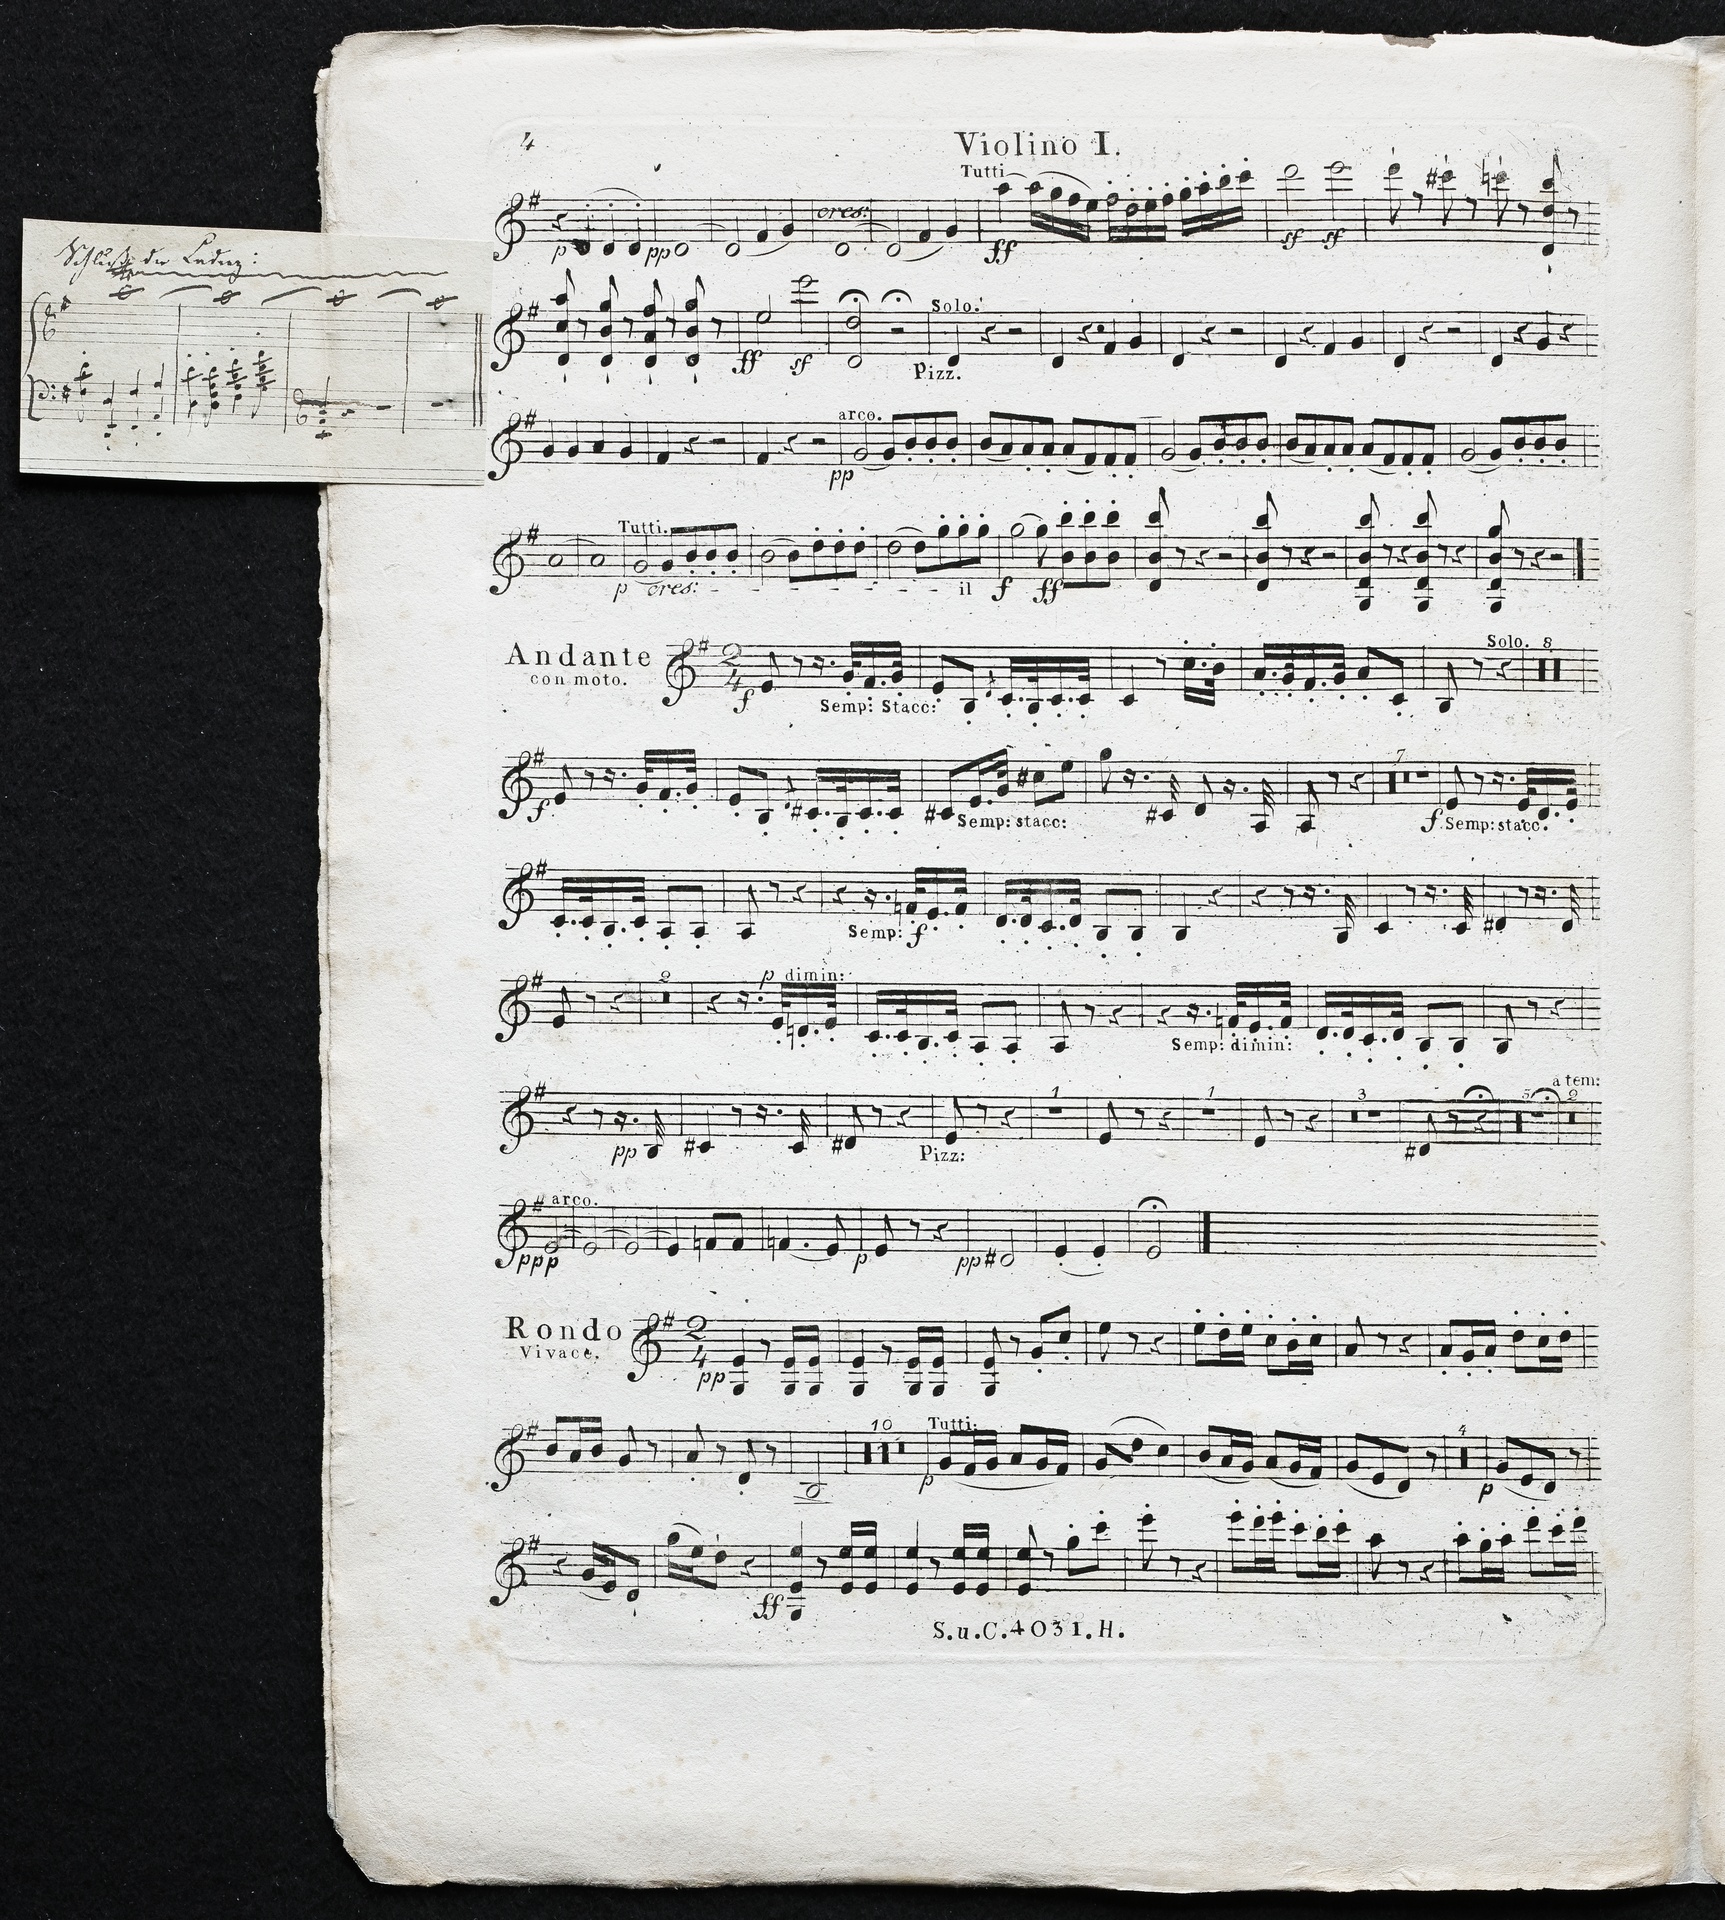 4
Violino I.
Tutti
cres:
p pp ff sf sf
Schluß der Cadenz:
Solo.
ff sf
Pizz.
arco.
pp
Tutti.
p cres: il f ff
Andante
con moto.
2
4
Solo. 8
f Semp: Stacc:
7
f Semp: stacc: f Semp: stacc.
Semp: f
2 p dimin:
Semp: dimin:
a tem:
1 1 3 5 2
pp Pizz:
arco.
ppp p pp
Rondo
Vivace.
2
4
pp
10 Tutti. 4
p p
ff
S.u.C.4031.H.